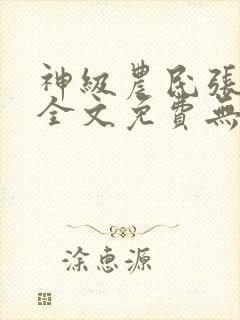 神級農民張
全文免費無
涂惠源